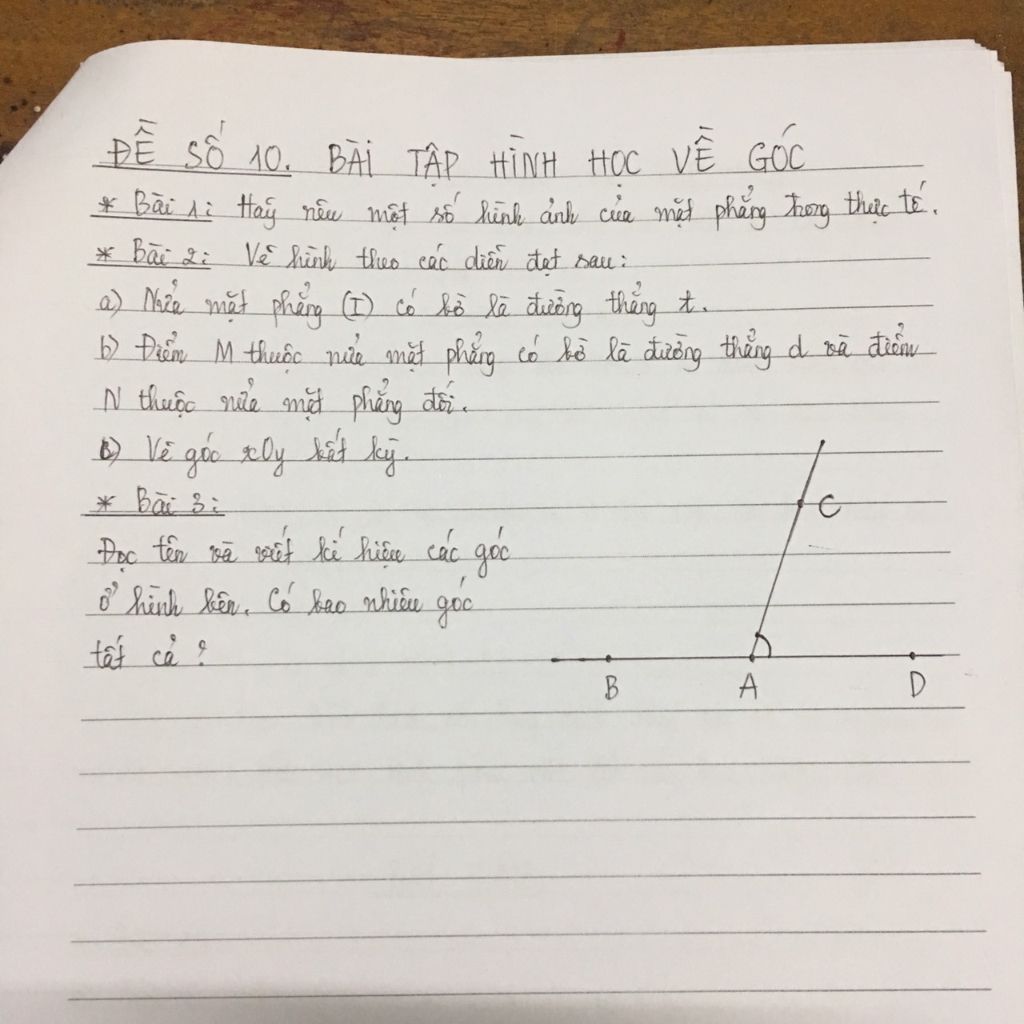 ĐỀ SỐ 10. BÀI TẬP HÌNH HỌC VỀ GÓC
* Bài 1: Haỹ nêu một số hình ảnh của mặt phẳng trong thực tế.
* Bài 2: Vẽ hình theo các diễn đạt sau:
a) Nửa mặt phẳng (I) có bờ là đường thẳng t.
b) Điểm M thuộc nửa mặt phẳng có bờ là đường thẳng d và điểm
N thuộc nửa mặt phẳng đối.
c) Vẽ góc xOy bất kỳ.
* Bài 3:
Đọc tên và viết kí hiệu các góc
ở hình bên. Có bao nhiêu góc
tất cả?
C
B A D